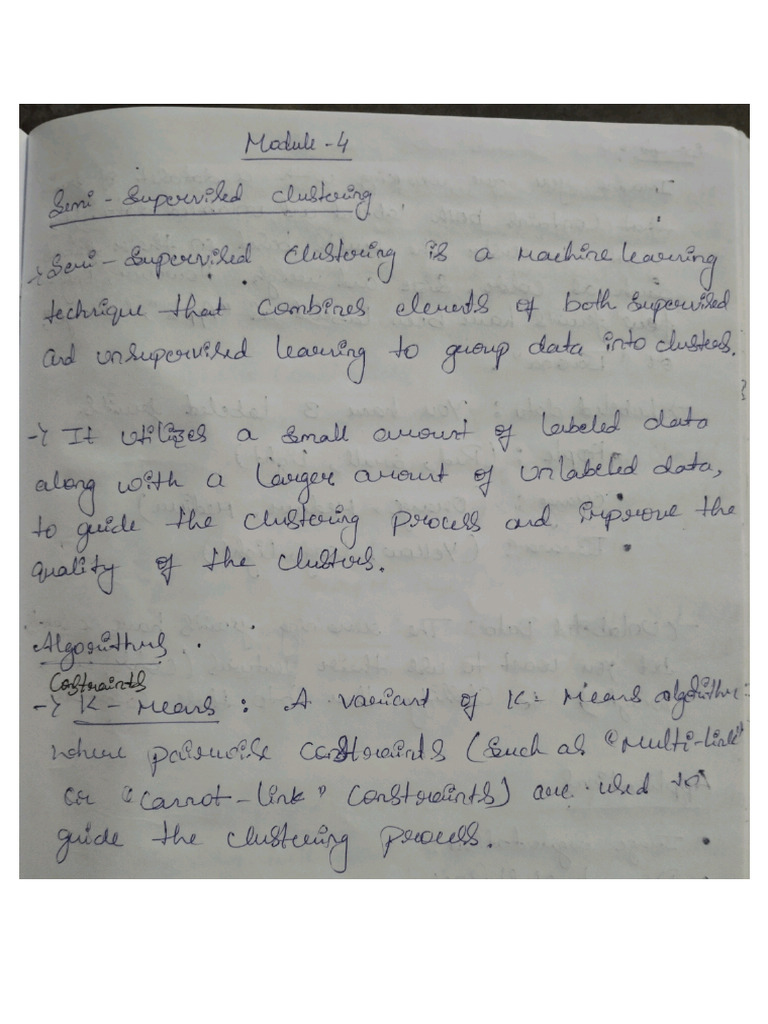 Module-4
Semi-Supervised Clustering
→ Semi-Supervised Clustering is a Machine learning
technique that combines elements of both supervised
and unsupervised learning to group data into clusters.
→ It utilizes a small amount of labeled data
along with a larger amount of unlabeled data,
to guide the clustering process and improve the
quality of the clusters.
Algorithms
Constraints
→ K-Means: A variant of K-Means algorithm
where pairwise constraints (such as "Multi-link"
or "Cannot-link" constraints) are used to
guide the clustering process.